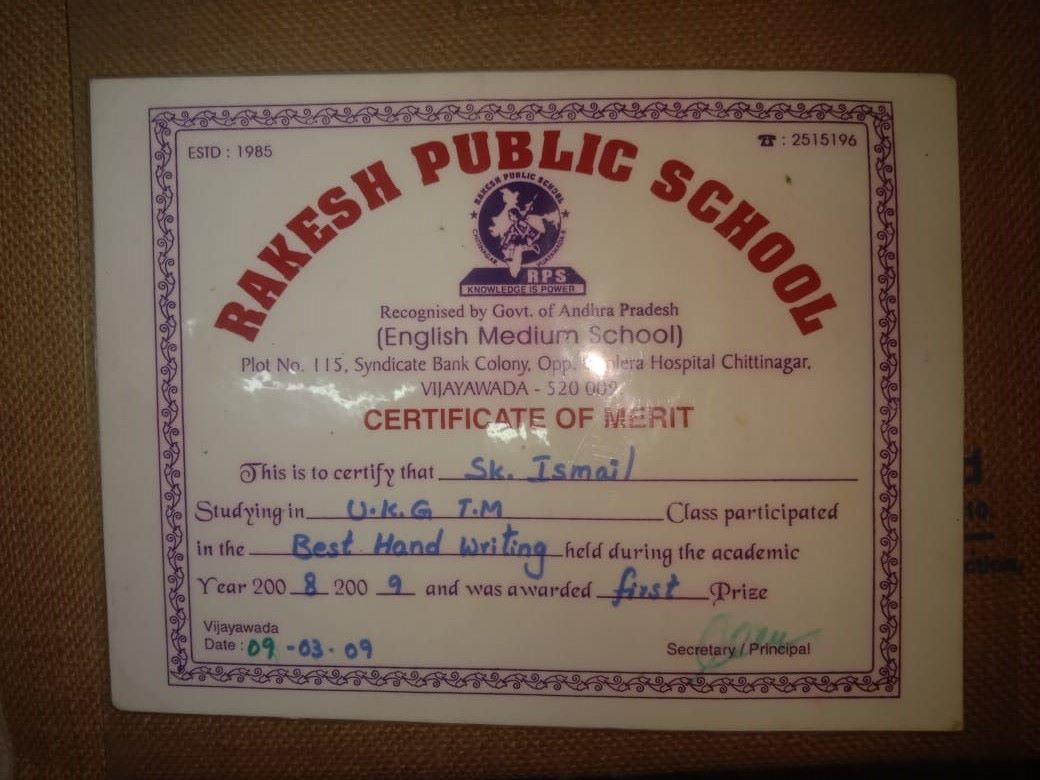 ESTD : 1985
☎ : 2515196
RAKESH PUBLIC SCHOOL
RAKESH PUBLIC SCHOOL
CHITTINAGAR,
RPS
KNOWLEDGE IS POWER
Recognised by Govt. of Andhra Pradesh
(English Medium School)
Plot No. 115, Syndicate Bank Colony, Opp. Hospital Chittinagar,
VIJAYAWADA - 520 009
CERTIFICATE OF MERIT
This is to certify that Sk. Ismail
Studying in U.K.G T.M Class participated
in the Best Hand Writing held during the academic
Year 200 8 200 9 and was awarded first Prize
Vijayawada
Date : 09 -03- 09
Secretary / Principal